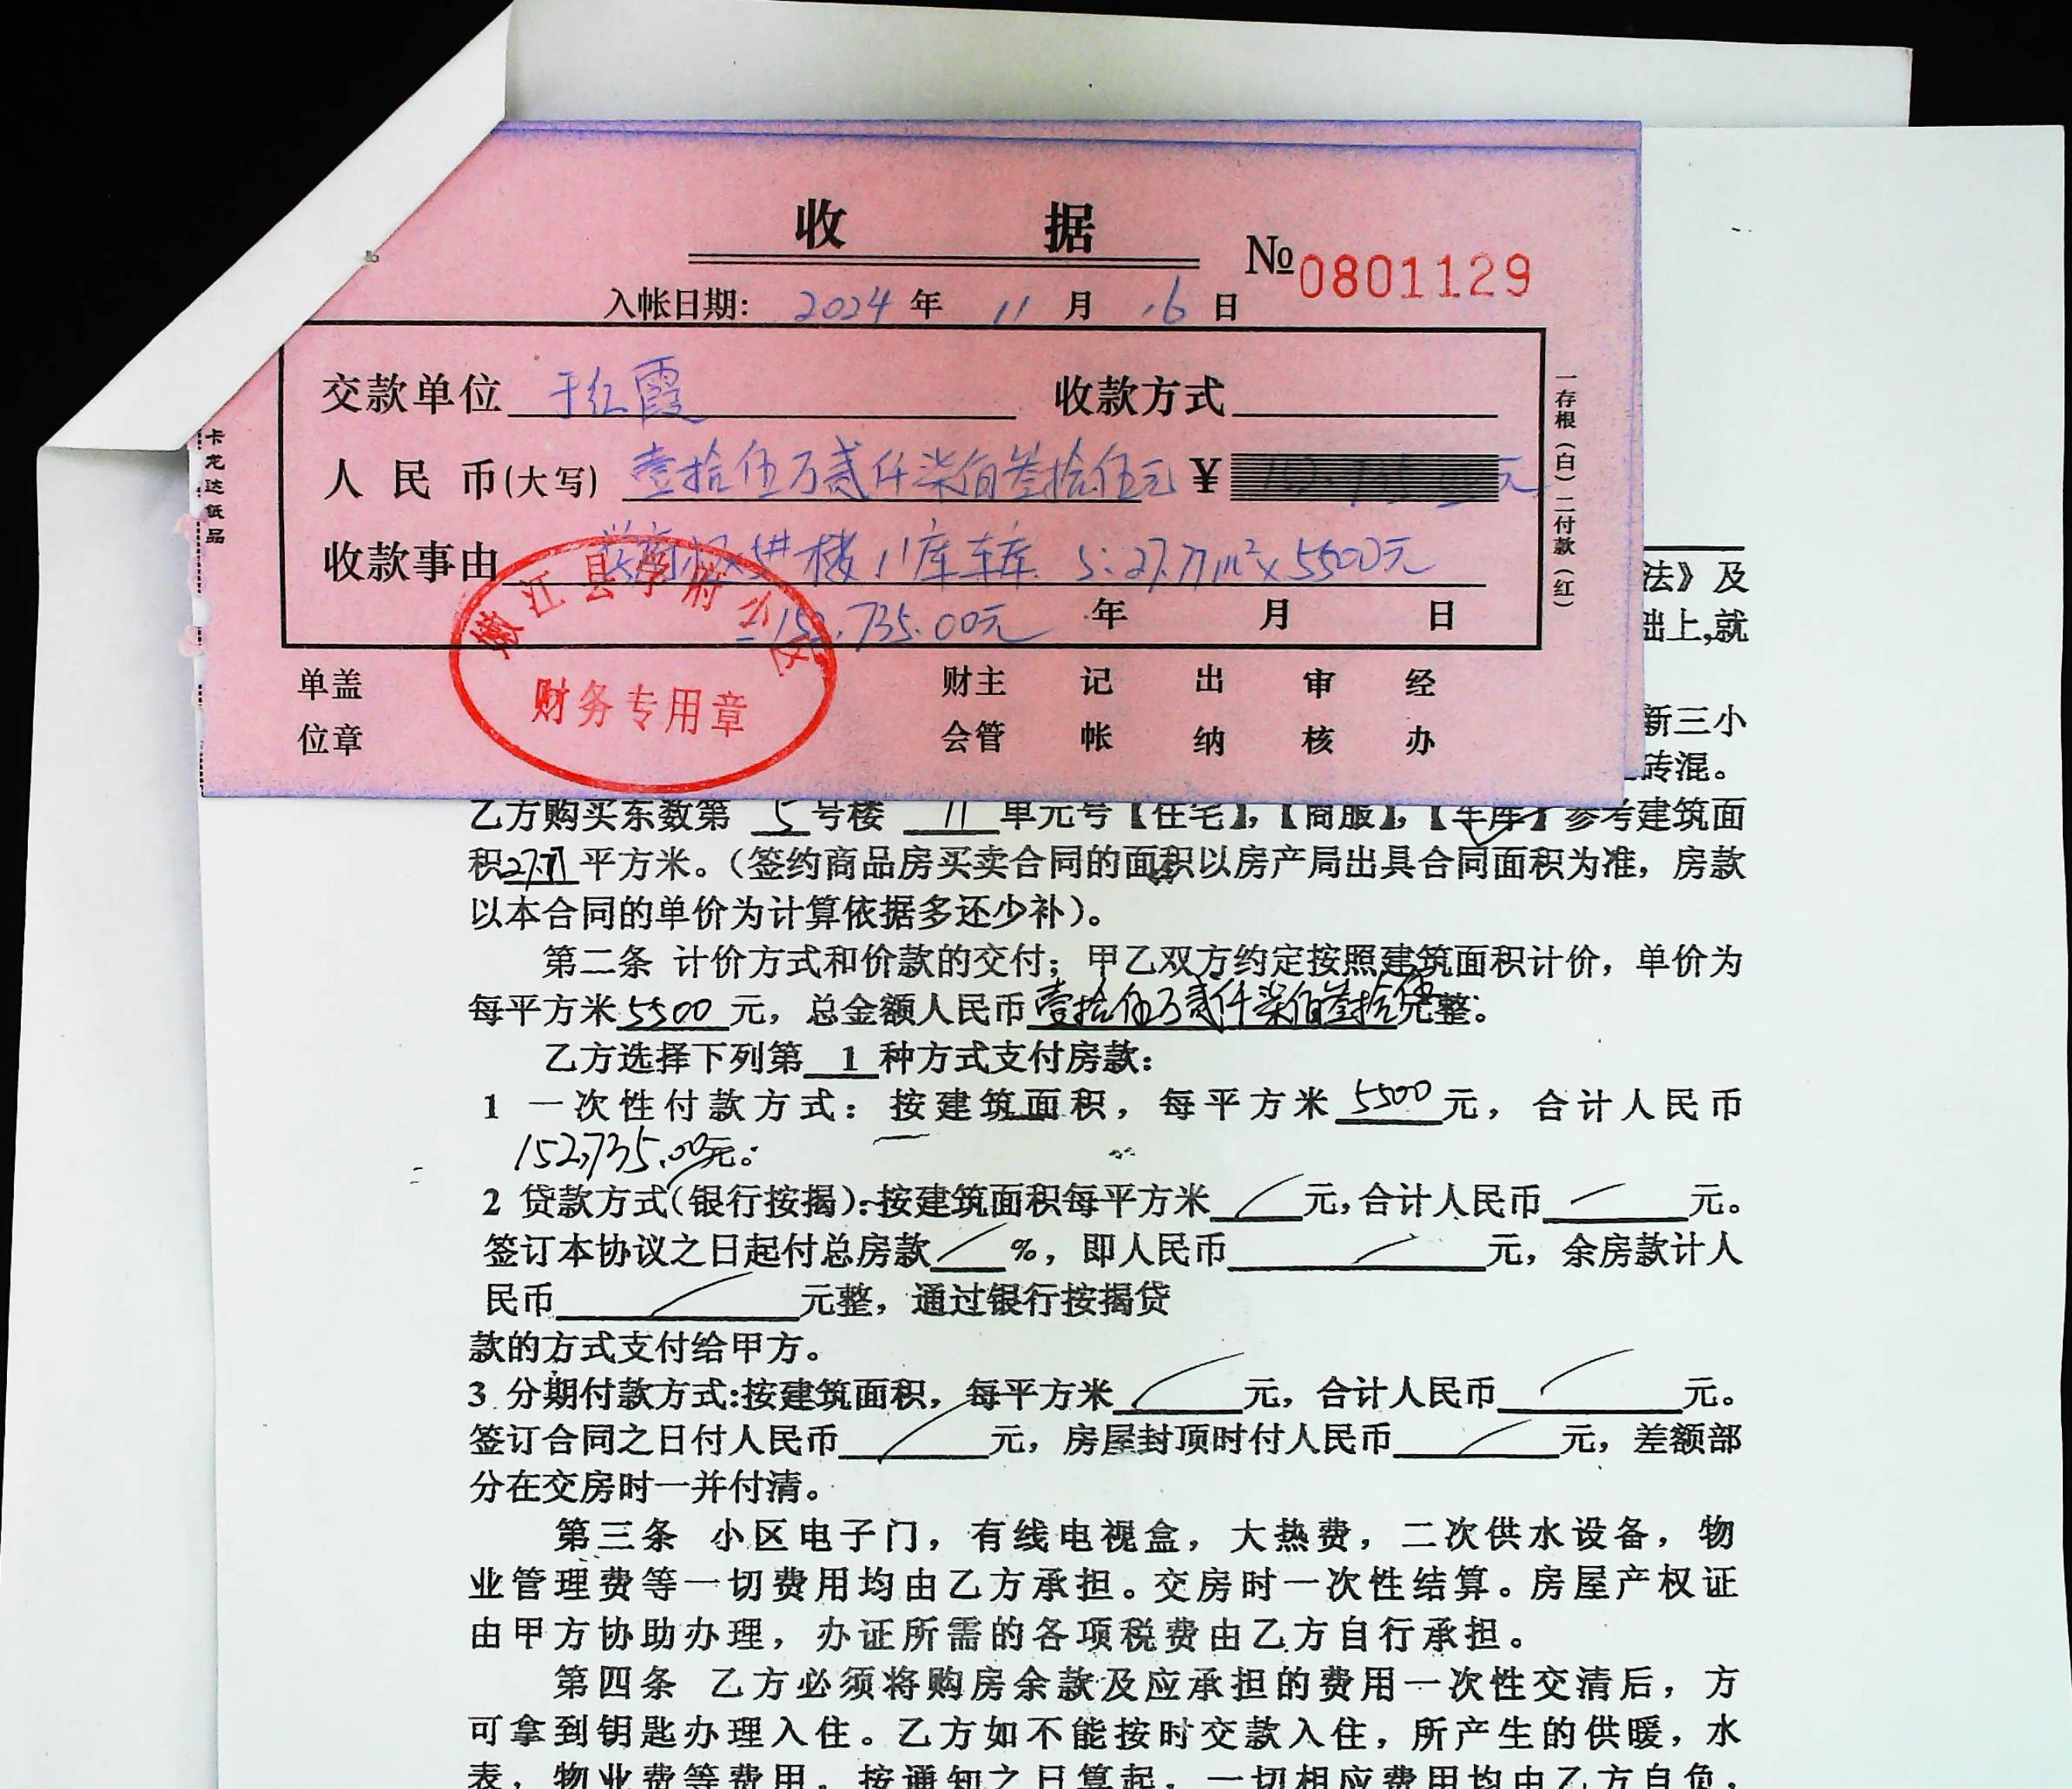 收 据
№0801129
入帐日期: 2024 年 11 月 16 日
交款单位 于红霞 收款方式
人民币(大写) 壹拾伍万贰仟柒佰叁拾伍元 ¥ 152,735.00元
收款事由 5#楼 11库车库 S:27.77m²×5500元
=152,735.00元 年 月 日
江县学府
财务专用章
单盖
位章
财主 记 出 审 经
会管 帐 纳 核 办
一存根(白)二付款(红)
卡龙达纸品
法》及
础上,就
新三小
砖混。
乙方购买东数第 5 号楼 11 单元号【住宅】,【商服】,【车库】参考建筑面
积27.77平方米。(签约商品房买卖合同的面积以房产局出具合同面积为准，房款
以本合同的单价为计算依据多还少补)。
第二条 计价方式和价款的交付；甲乙双方约定按照建筑面积计价，单价为
每平方米5500元，总金额人民币壹拾伍万贰仟柒佰叁拾伍元整。
乙方选择下列第 1 种方式支付房款：
1 一次性付款方式：按建筑面积，每平方米5500元，合计人民币
152,735.00元。
2 贷款方式(银行按揭):按建筑面积每平方米 元,合计人民币 元。
签订本协议之日起付总房款 %，即人民币 元，余房款计人
民币 元整，通过银行按揭贷
款的方式支付给甲方。
3.分期付款方式:按建筑面积，每平方米 元，合计人民币 元。
签订合同之日付人民币 元，房屋封顶时付人民币 元，差额部
分在交房时一并付清。
第三条 小区电子门，有线电视盒，大热费，二次供水设备，物
业管理费等一切费用均由乙方承担。交房时一次性结算。房屋产权证
由甲方协助办理，办证所需的各项税费由乙方自行承担。
第四条 乙方必须将购房余款及应承担的费用一次性交清后，方
可拿到钥匙办理入住。乙方如不能按时交款入住，所产生的供暖，水
表，物业费等费用，按通知之日算起，一切相应费用均由乙方自负，